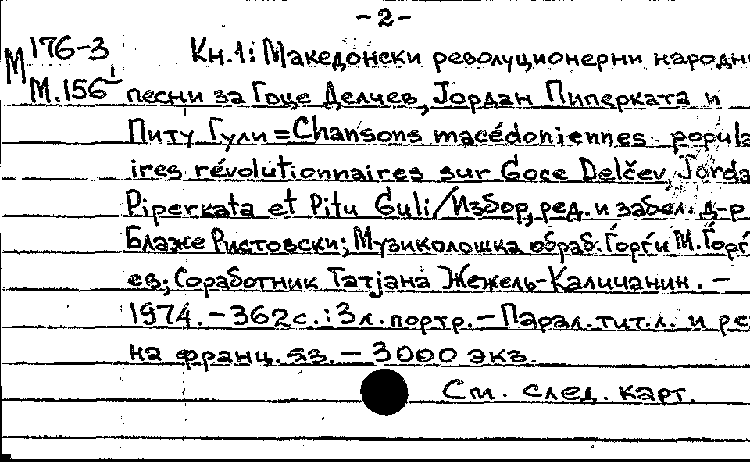 -2-
М 176-3 Кн.1: Македонски револуционерни народни
М.156 песни за Гоце Делчев, Јордан Пиперката и
Питу Гули = Chansons macédoniennes popula
ires révolutionnaires sur Goce Delčev, Jorda
Piperkata et Pitu Guli/Избор, ред. и забел. д-р
Блаже Ристовски; Музиколошка обраб. Ѓорѓи М. Ѓорѓ
ев; Соработник Татјана Жежель-Каличанин. –
1974. – 362 с.: 3 л. портр. – Парал. тит. л. и ре
на франц. яз. – 3000 экз.
См. след. карт.